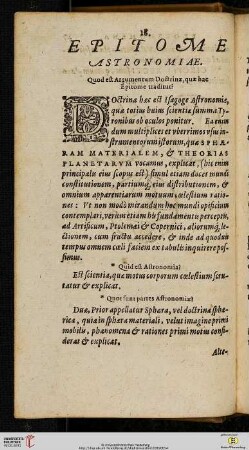 18.
EPITOME
ASTRONOMIAE.
Quod est Argumentum Doctrinæ, quæ hac
Epitome traditur?
DOctrina hæc est Isagoge Astronomiæ,
quæ totius huius scientiæ summa Ty-
ronibus ob oculos ponitur. Ea enim
dum multiplices et vberrimos vsus in-
strumentorum istorum, quæ SPHAE-
RAM MATERIALEM, & THEORIAS
PLANETARVM vocamus, explicat, (hic enim
principalis eius scopus est) simul etiam docet mundi
constitutionem, partiumq, eius distributionem, &
omnium apparentiarum motuum cœlestium ratio-
nes: Vt non modò mirandum hoc mundi opificium
contemplari, verum etiam his fundamentis perceptis,
ad Artificum, Ptolemæi & Copernici, aliorumq, le-
ctionem, cum fructu accedere, & inde ad quoduis
tempus omnem cœli faciem ex tabulis inquirere pos-
simus.
* Quid est Astronomia?
Est scientia, quæ motus corporum cœlestium scru-
tatur & explicat.
* Quot sunt partes Astronomiæ?
Duæ, Prior appellatur Sphæra, vel doctrina sphæ-
rica, quia in sphæra materiali, velut imagine primi
mobilis, phænomena & rationes primi motus consi-
derat & explicat.
Alte-